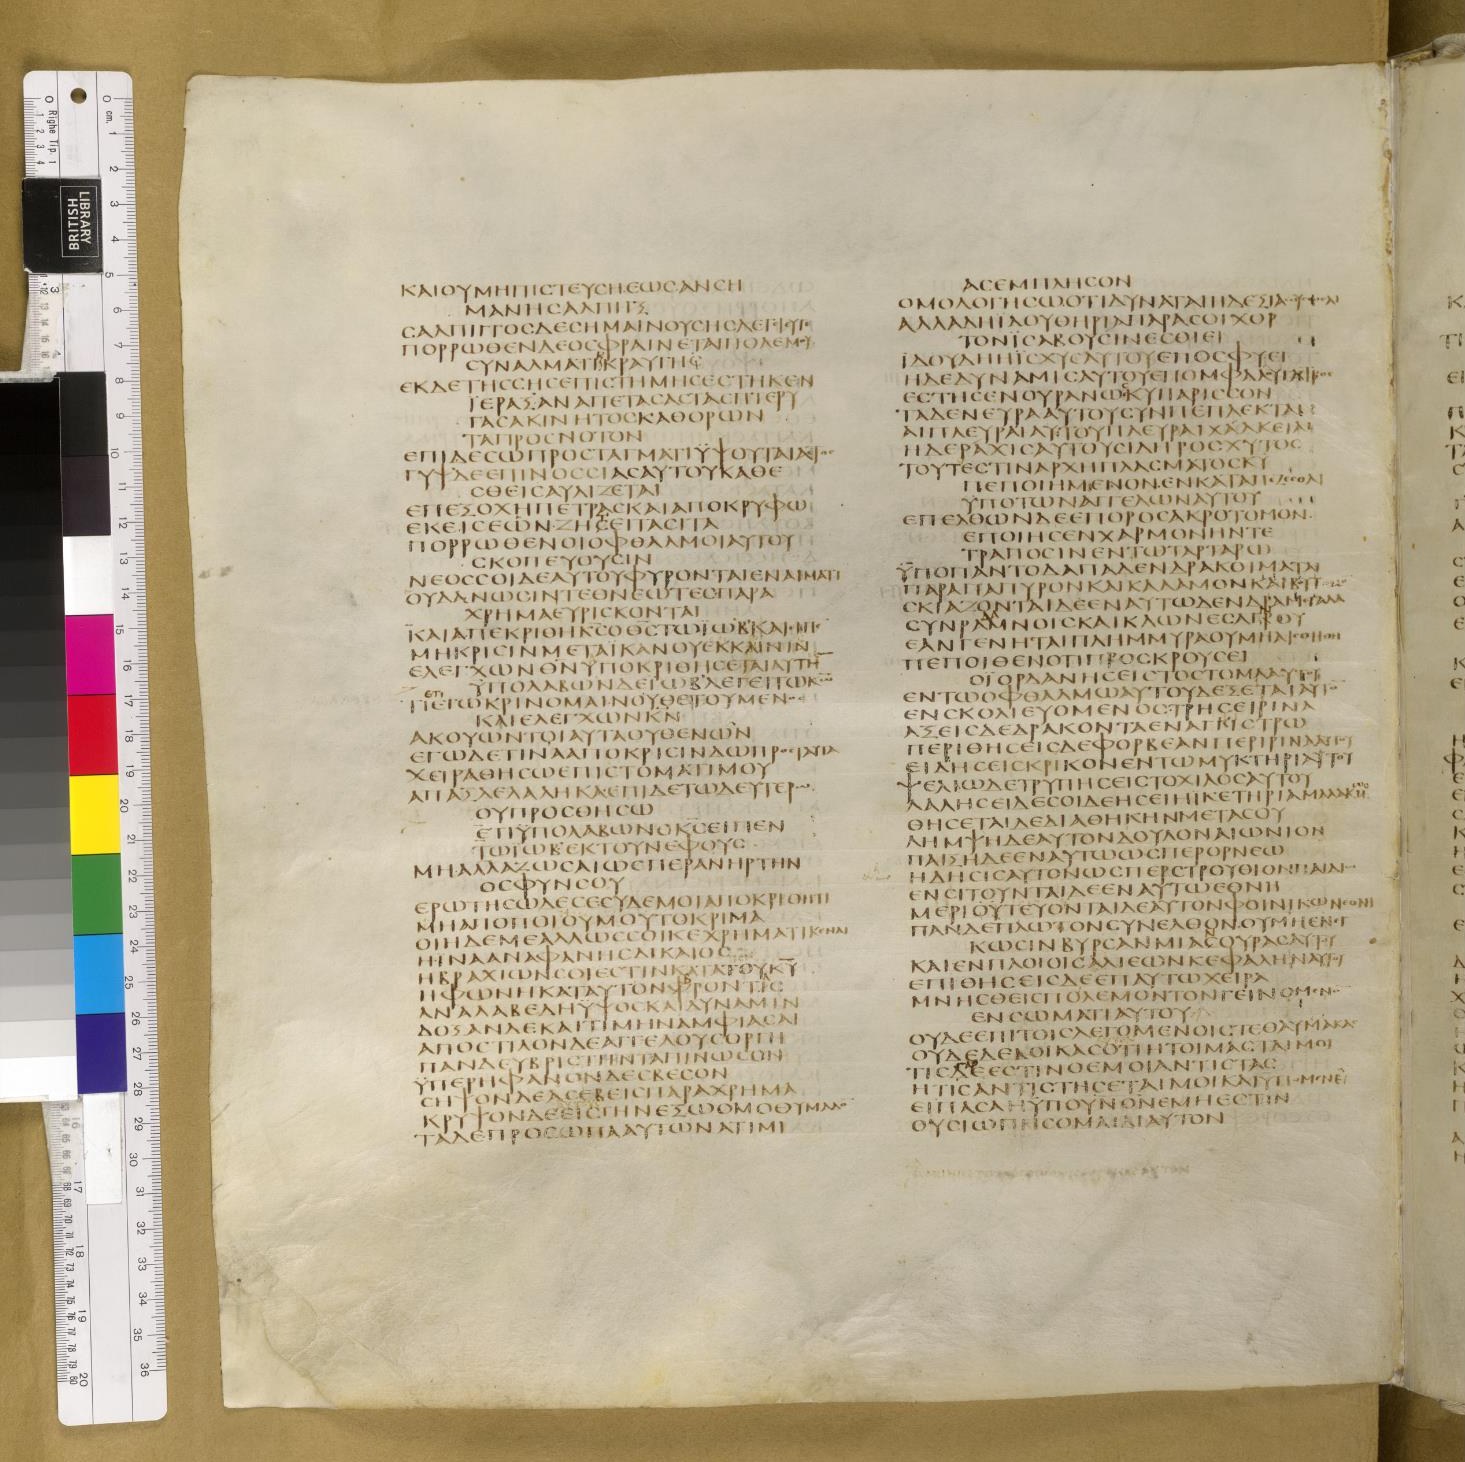 ΚΑΙΟΥΜΗΠΙСΤΕΥСΗΕΩСΑΝСΗ
ΜΑΝΗСΑΛΠΙΓΞ
СΑΛΠΙΓΓΟСΔΕСΗΜΑΙΝΟΥСΗС
ΠΟΡΡΩΘΕΝΔΕΟСΦΡΑΙΝΕΤΑΙΠΟΛΕΜΟΥ
СΥΝΑΛΜΑΤΙΚΡΑΥΓΗС
ΕΚΔΕΤΗССΗСΕΠΙСΤΗΜΗСΕСΤΗΚΕΝ
ΙΕΡΑΞΑΝΑΠΕΤΑСΑСΤΑСΠΤΕΡΥ
ΓΑСΑΚΙΝΗΤΟСΚΑΘΟΡΩΝ
ΤΑΠΡΟСΝΟΤΟΝ
ΕΠΙΔΕСΩΠΡΟСΤΑΓΜΑΤΙΫΨΟΥΤΑΙΑΕΤΟС
ΓΥΨΔΕΕΠΙΝΟССΙΑСΑΥΤΟΥΚΑΘΕ
СΘΕΙСΑΥΛΙΖΕΤΑΙ
ΕΠΕΞΟΧΗΠΕΤΡΑСΚΑΙΑΠΟΚΡΥΦΩ
ΕΚΕΙСΕΩΝΖΗΤΕΙΤΑСΙΤΑ
ΠΟΡΡΩΘΕΝΟΙΟΦΘΑΛΜΟΙΑΥΤΟΥ
СΚΟΠΕΥΟΥСΙΝ
ΝΕΟССΟΙΔΕΑΥΤΟΥΦΥΡΟΝΤΑΙΕΝΑΙΜΑΤΙ
ΟΥΔΑΝΩСΙΝΤΕΘΝΕΩΤΕСΠΑΡΑ
ΧΡΗΜΑΕΥΡΙСΚΟΝΤΑΙ
ΚΑΙΑΠΕΚΡΙΘΗΚСΟΘСΤΩΪΩΒΚΑΙΕΙΠΕ
ΜΗΚΡΙСΙΝΜΕΤΑΪΚΑΝΟΥΕΚΚΛΙΝΙΝ
ΕΛΕΓΧΩΝΘΝΫΠΟΚΡΙΘΗСΕΤΑΙΑΥΤΗ
ΫΠΟΛΑΒΩΝΔΕΪΩΒΛΕΓΕΙΤΩΚΩ
ΤΙΕΓΩΚΡΙΝΟΜΑΙΝΟΥΘΕΤΟΥΜΕΝΟС
ΚΑΙΕΛΕΓΧΩΝΚΝ
ΑΚΟΥΩΝΤΟΙΑΥΤΑΟΥΘΕΝΩΝ
ΕΓΩΔΕΤΙΝΑΑΠΟΚΡΙСΙΝΔΩΠΡΟСΤΑΥΤΑ
ΧΕΙΡΑΘΗСΩΕΠΙСΤΟΜΑΤΙΜΟΥ
ΑΠΑΞΛΕΛΑΛΗΚΑΕΠΙΔΕΤΩΔΕΥΤΕΡΩ
ΟΥΠΡΟСΘΗСΩ
ΕΤΙΫΠΟΛΑΒΩΝΟΚСΕΙΠΕΝ
ΤΩΪΩΒΕΚΤΟΥΝΕΦΟΥС
ΜΗΑΛΛΑΖΩСΑΙΩСΠΕΡΑΝΗΡΤΗΝ
ΟСΦΥΝСΟΥ
ΕΡΩΤΗСΩΔΕСΕСΥΔΕΜΟΙΑΠΟΚΡΙΘΗΤΙ
ΜΗΑΠΟΠΟΙΟΥΜΟΥΤΟΚΡΙΜΑ
ΟΙΗΔΕΜΕΑΛΛΩССΟΙΚΕΧΡΗΜΑΤΙΚΕΝΑΙ
ΗΪΝΑΑΝΑΦΑΝΗСΔΙΚΑΙΟС
ΗΒΡΑΧΙΩΝСΟΙΕСΤΙΝΚΑΤΑΤΟΥΚΥ
ΗΦΩΝΗΚΑΤΑΥΤΟΝΒΡΟΝΤΑС
ΑΝΑΛΑΒΕΔΗΫΨΟСΚΑΙΔΥΝΑΜΙΝ
ΔΟΞΑΝΔΕΚΑΙΤΙΜΗΝΑΜΦΙΑСΑΙ
ΑΠΟСΤΙΛΟΝΔΕΑΓΓΕΛΟΥСΟΡΓΗ
ΠΑΝΔΕΥΒΡΙСΤΗΝΤΑΠΙΝΩСΟΝ
ΫΠΕΡΗΦΑΝΟΝΔΕСΒΕСΟΝ
СΗΨΟΝΔΕΑСΕΒΕΙСΠΑΡΑΧΡΗΜΑ
ΚΡΥΨΟΝΔΕΕΙСΓΗΝΕΞΩΟΜΟΘΥΜΑΔΟΝ
ΤΑΔΕΠΡΟСΩΠΑΑΥΤΩΝΑΤΙΜΙ
ΑСΕΜΠΛΗСΟΝ
ΟΜΟΛΟΓΗСΩΟΤΙΔΥΝΑΤΑΙΗΔΕΞΙΑСΟΥ
ΑΛΛΑΔΗΪΔΟΥΘΗΡΙΑΠΑΡΑСΟΙΧΟΡ
ΤΟΝΪСΑΒΟΥСΙΝΕСΘΙΕΙ
ΪΔΟΥΔΗΗΪСΧΥСΑΥΤΟΥΕΠΟСΦΥΕΙ
ΗΔΕΔΥΝΑΜΙСΑΥΤΟΥΕΠΟΜΦΑΛΟΥ
ΕСΤΗСΕΝΟΥΡΑΝΩСΚΥΠΑΡΙССΟΝ
ΤΑΔΕΝΕΥΡΑΑΥΤΟΥСΥΝΠΕΠΛΕΚΤΑΙ
ΑΙΠΛΕΥΡΑΙΑΥΤΟΥΠΛΕΥΡΑΙΧΑΛΚΕΙΑΙ
ΗΔΕΡΑΧΙСΑΥΤΟΥСΙΔΗΡΟСΧΥΤΟС
ΤΟΥΤΕСΤΙΝΑΡΧΗΠΛΑСΜΑΤΟСΚΥ
ΠΕΠΟΙΗΜΕΝΟΝΕΝΚΑΤΑΠΕΖΕСΘΑΙ
ΫΠΟΤΩΝΑΓΓΕΛΩΝΑΥΤΟΥ
ΕΠΕΛΘΩΝΔΕΕΠΟΡΟСΑΚΡΟΤΟΜΟΝ
ΕΠΟΙΗСΕΝΧΑΡΜΟΝΗΝΤΕ
ΤΡΑΠΟСΙΝΕΝΤΩΤΑΡΤΑΡΩ
ΫΠΟΠΑΝΤΟΔΑΠΑΔΕΝΔΡΑΚΟΙΜΑΤΑΙ
ΠΑΡΑΠΑΠΥΡΟΝΚΑΙΚΑΛΑΜΟΝΚΑΙΒΟΥΤΟΜΟΝ
СΚΙΑΖΟΝΤΑΙΔΕΕΝΑΥΤΩΔΕΝΔΡΑΜΕΓΑΛΑ
СΥΝΡΑΜΝΟΙСΚΑΙΚΛΩΝΕСΑΓΡΟΥ
ΕΑΝΓΕΝΗΤΑΙΠΛΗΜΜΥΡΑΟΥΜΗΑΙСΘΗΘΗ
ΠΕΠΟΙΘΕΝΟΤΙΠΡΟСΚΡΟΥСΕΙ
ΟΪΟΡΔΑΝΗСΕΙСΤΟСΤΟΜΑΑΥΤΟΥ
ΕΝΤΩΟΦΘΑΛΜΩΑΥΤΟΥΔΕΞΕΤΑΙΑΥΤΟΝ
ΕΝСΚΟΛΙΕΥΟΜΕΝΟСΤΡΗСΕΙΡΙΝΑ
ΑΞΕΙСΔΕΔΡΑΚΟΝΤΑΕΝΑΓΚΙСΤΡΩ
ΠΕΡΙΘΗСΕΙСΔΕΦΟΡΒΕΑΝΠΕΡΙΡΙΝΑΑΥΤΟΥ
ΕΙΔΗСΕΙСΚΡΙΚΟΝΕΝΤΩΜΥΚΤΗΡΙΑΥΤΟΥ
ΨΕΛΙΩΔΕΤΡΥΠΗСΕΙСΤΟΧΙΛΟСΑΥΤΟΥ
ΛΑΛΗСΕΙΔΕСΟΙΔΕΗСΕΙΗΪΚΕΤΗΡΙΑΜΑΛΑΚΩС
ΘΗСΕΤΑΙΔΕΔΙΑΘΗΚΗΝΜΕΤΑСΟΥ
ΛΗΜΨΗΔΕΑΥΤΟΝΔΟΥΛΟΝΑΙΩΝΙΟΝ
ΠΑΙΞΗΔΕΕΝΑΥΤΩΩСΠΕΡΟΡΝΕΩ
ΗΔΗСΙСΑΥΤΟΝΩСΠΕΡСΤΡΟΥΘΙΟΝΠΑΙΔΙΩ
ΕΝСΙΤΟΥΝΤΑΙΔΕΕΝΑΥΤΩΕΘΝΗ
ΜΕΡΙΟΥΤΕΥΟΝΤΑΙΔΕΑΥΤΟΝΦΟΙΝΙΚΩΝΕΘΝΗ
ΠΑΝΔΕΠΛΩΤΟΝСΥΝΕΛΘΟΝΟΥΜΗΕΝΕΓ
ΚΩСΙΝΒΥΡСΑΝΜΙΑСΟΥΡΑСΑΥΤΟΥ
ΚΑΙΕΝΠΛΟΙΟΙСΑΛΙΕΩΝΚΕΦΑΛΗΝΑΥΤΟΥ
ΕΠΙΘΗСΕΙСΔΕΕΠΑΥΤΩΧΕΙΡΑ
ΜΝΗСΘΕΙСΠΟΛΕΜΟΝΤΟΝΓΕΙΝΟΜΕΝΟΝ
ΕΝСΩΜΑΤΙΑΥΤΟΥ
ΟΥΔΕΕΠΙΤΟΙСΛΕΓΟΜΕΝΟΙСΤΕΘΑΥΜΑΚΑС
ΟΥΔΕΔΕΔΟΙΚΑСΟΤΙΗΤΟΙΜΑСΤΑΙΜΟΙ
ΤΙСΔΕΕСΤΙΝΟΕΜΟΙΑΝΤΙСΤΑС
ΗΤΙСΑΝΤΙСΤΗСΕΤΑΙΜΟΙΚΑΙΫΠΟΜΕΝΕΙ
ΕΙΠΑСΑΗΫΠΟΥΝΟΝΕΜΗΕСΤΙΝ
ΟΥСΙΩΠΗСΟΜΑΙΔΙΑΥΤΟΝ
LIBRARY
BRITISH
Righe Tip. 1
cm.